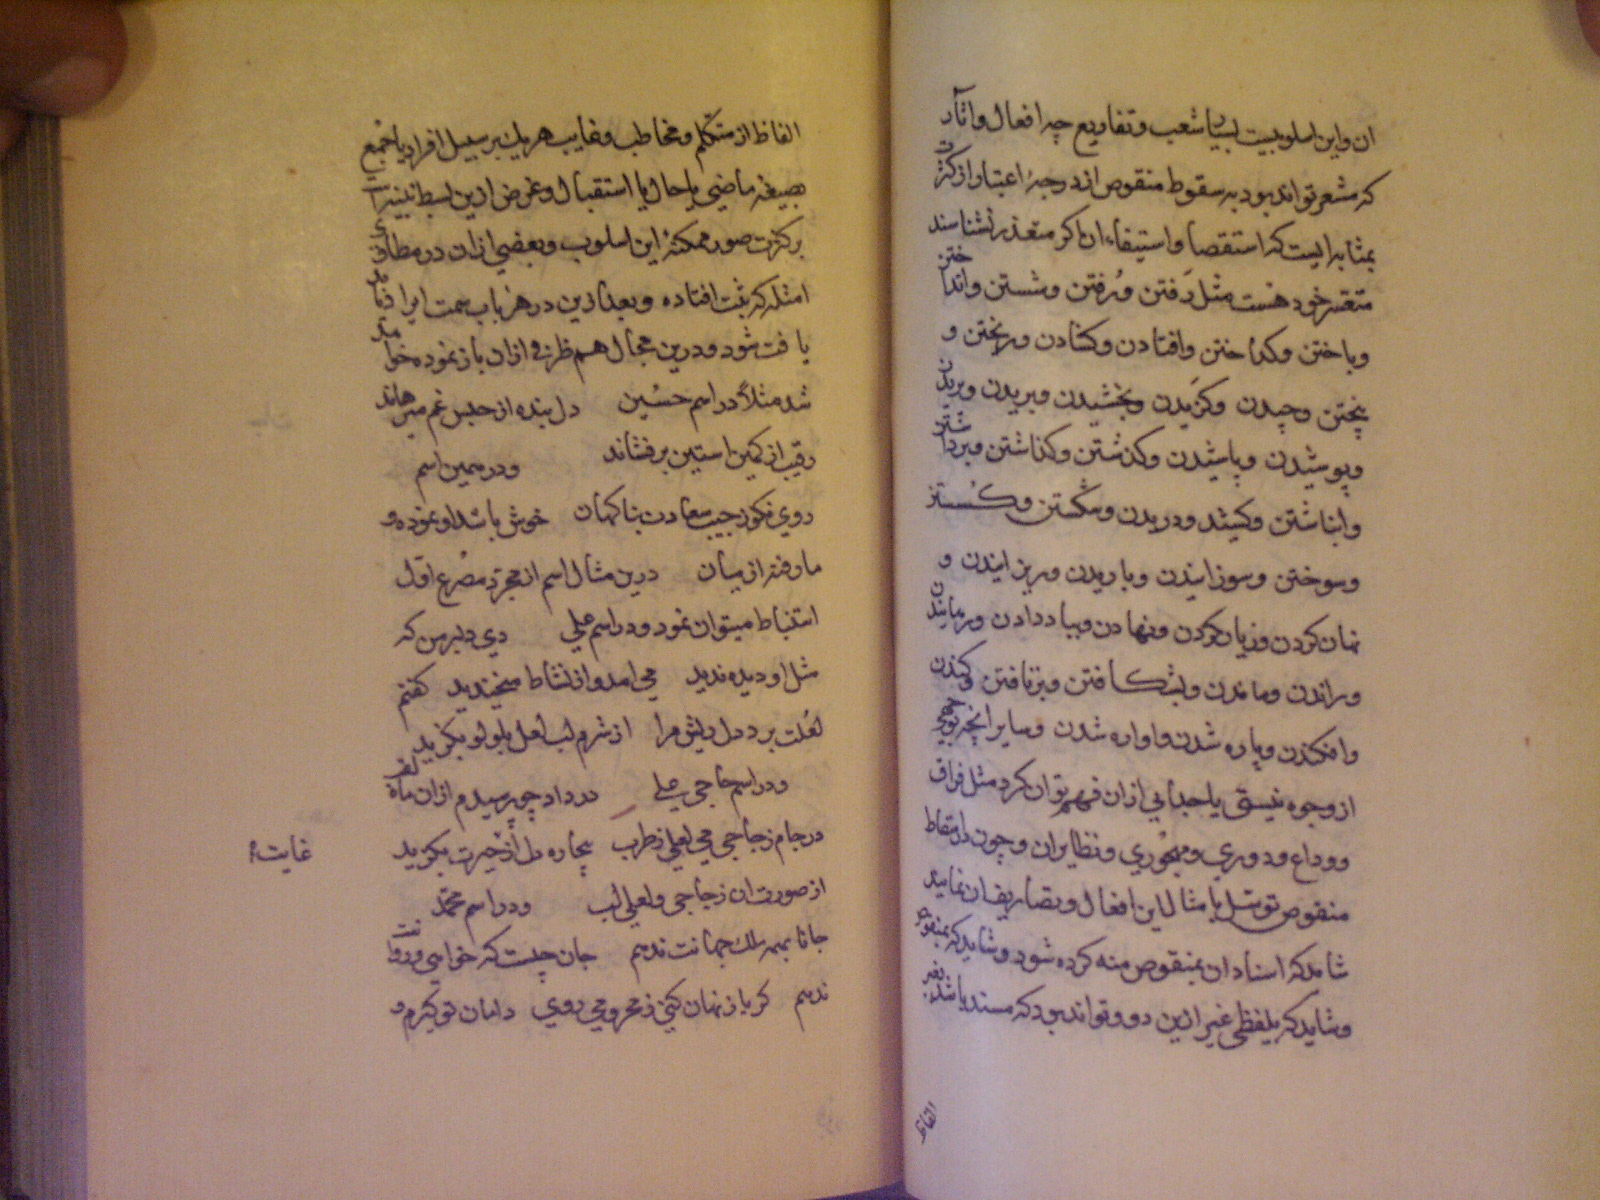 ان واین اسلوبیست بسیار شعب و تفاریع چه افعال و اثار
که مشعر تواند بود به سقوط منقوص از درجهٔ اعتبار از کثرت
بمثابه ایست که استقصا و استیفاء ان اکر متعذر نشناسند
متعسر خود هست مثل رَفتن و رُفتن و شستن و انداختن
و باختن و کداختن و افتادن و کشادن و ریختن و
پختن و چیدن و کزیدن و بخشیدن و بریدن و بریدن
و پوشیدن و پاشیدن و کذشتن و کذاشتن و برداشتن
و انباشتن و کشید و دریدن و شکستن و کسستن
و سوختن و سوزانیدن و باریدن و ریزانیدن و
نهان کردن و زیان کردن و نهادن و بباد دادن و رمانیدن
و راندن و ماندن و شکافتن و برتافتن و کندن
و افکندن و پاره شدن و اواره شدن و سایر انچه بوجهی
از وجوه نیستی یا جدایی از ان فهم توان کرد مثل فراق
و وداع و دوری و مهجوری و نظایر ان و چون در اسقاط
منقوص توسل بامثال این افعال و تصاریف ان نمایند
شاید که اسناد ان بمنقوص منه کرده شود و شاید که بمنقوص
و شاید که بلفظی غیر ازین دو و تواند بود که مسند باشد بغیر
الفاظ
الفاظ از متکلم و مخاطب و غایب هر یک بر سبیل افراد یا جمع
بصیغه ماضی یا حال یا استقبال و غرض ازین بسط تنبیه است
بر کثرت صور ممکنهٔ این اسلوب و بعضی از ان در مطاوی
امثله که ثبت افتاده و بعد ازین در هر باب سمت ایراد خواهد
یافت شود و درین مجال هم طرفی از ان باز نموده خواهد
شد مثلاً در اسم حسین    دل بنده از حبس غم میرهاند
رقیب از کمین استین برفشاند    و در همین اسم
روی نکو ز جیب سعادت بناکهان    خوش باشد او نموده و
ما رفته از میان    درین مثال اسم از مجرد مصرع اول
استنباط میتوان نمود و در اسم علی    دی دلبر من که
مثل او دیده ندید    می امد و از نشاط میخندید    کفتم
لعلت برد دل ریش مرا    از شرم لب لعل بلولو بکزید
و در اسم حاجی علی    در داد چو پرسیدم از ان ماه لقب
در جام زجاجی می لعلی ز طرب    بیچاره دل از حیرت بکزید
غایت
از صورت ان زجاجی و لعلی لب    و در اسم محمد
جانا بهمه ملک جهانت ندهم    جان چیست که خواهی و روانت
ندهم    کر باز نهان کنی ز محرومی روی    دامان تو کیرم و